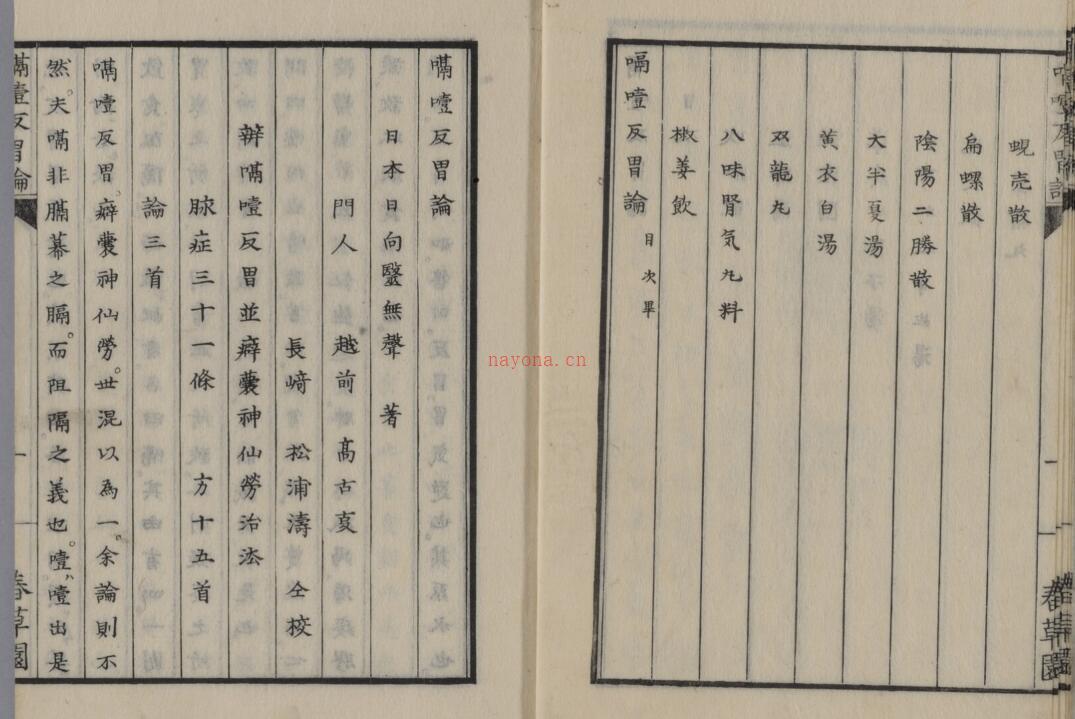 蜆売散
扁螺散
陰陽二勝散
大半夏湯
黄衣白湯
双龍丸
八味腎気丸料
椒姜飲
嗝噎反胃論 目次畢
嗝噎反胃論
日本日向毉無聲 著
門人 越前 髙古夏
長﨑 松浦濤 仝挍
辨嗝噎反胃並癖囊神仙勞治法
脉症三十一條 方十五首
論三首
嗝噎反胃。癖囊神仙勞。世混以為一。余論則不
然。夫嗝非膈幕之膈。而阻隔之義也。噎噎出是
嗝噎反胃論
一
春草園
nayona.cn